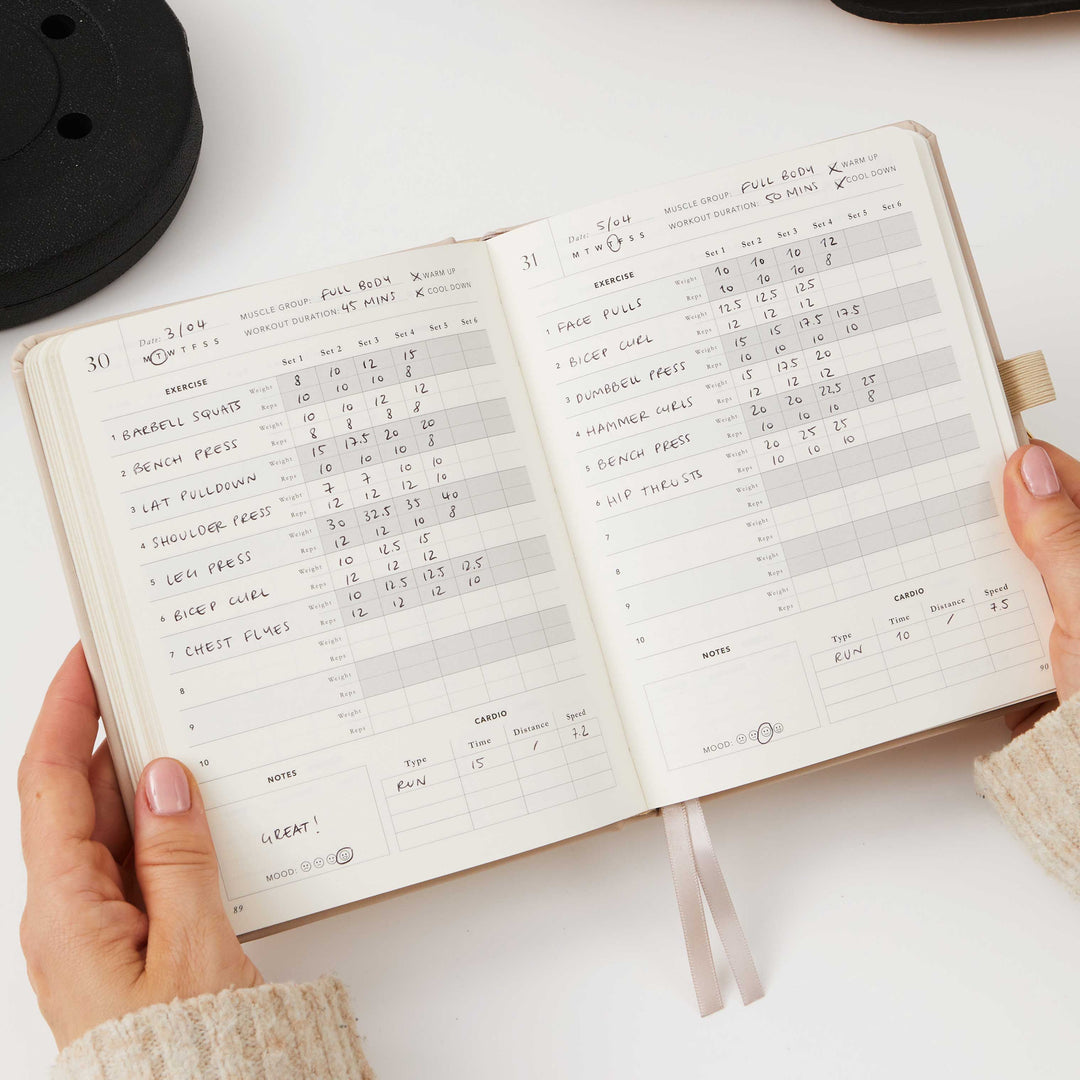 30
Date: 3/04
M T W T F S S
MUSCLE GROUP: FULL BODY X WARM UP
WORKOUT DURATION: 45 MINS X COOL DOWN
EXERCISE Set 1 Set 2 Set 3 Set 4 Set 5 Set 6
1 BARBELL SQUATS Weight 8 10 12 15
Reps 10 10 10 8
2 BENCH PRESS Weight 10 10 12 12
Reps 8 8 8 8
3 LAT PULLDOWN Weight 15 17.5 20 20
Reps 10 10 10 8
4 SHOULDER PRESS Weight 7 7 10 10
Reps 12 12 12 10
5 LEG PRESS Weight 30 32.5 35 40
Reps 12 12 10 8
6 BICEP CURL Weight 10 12.5 15
Reps 12 12 12
7 CHEST FLYES Weight 10 12.5 12.5 12.5
Reps 12 12 12 10
8 Weight
Reps
9 Weight
Reps
10 Weight
Reps
NOTES
GREAT!
MOOD:
CARDIO
Type Time Distance Speed
RUN 15 / 7.2
89
31
Date: 5/04
M T W T F S S
MUSCLE GROUP: FULL BODY X WARM UP
WORKOUT DURATION: 50 MINS X COOL DOWN
EXERCISE Set 1 Set 2 Set 3 Set 4 Set 5 Set 6
1 FACE PULLS Weight 10 10 10 12
Reps 10 10 10 8
2 BICEP CURL Weight 12.5 12.5 12.5
Reps 12 12 12
3 DUMBBELL PRESS Weight 15 15 17.5 17.5
Reps 10 10 10 10
4 HAMMER CURLS Weight 15 17.5 20
Reps 12 12 12
5 BENCH PRESS Weight 20 20 22.5 25
Reps 10 10 10 8
6 HIP THRUSTS Weight 20 25 25
Reps 10 10 10
7 Weight
Reps
8 Weight
Reps
9 Weight
Reps
10 Weight
Reps
NOTES
MOOD:
CARDIO
Type Time Distance Speed
RUN 10 / 7.5
90